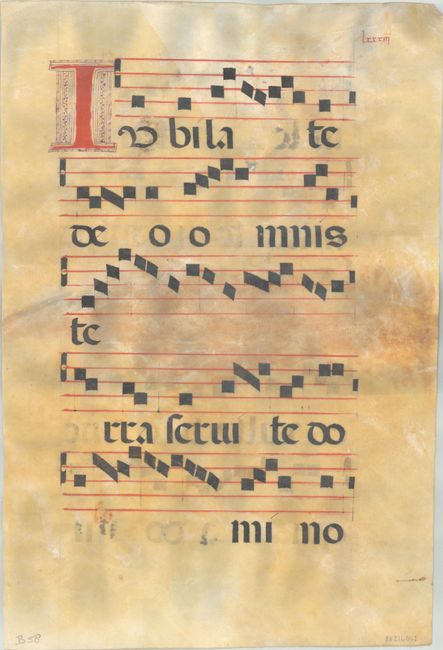 lxxxiij
Iubila te
de o o mnis
te
rra serui te do
mi no
B58